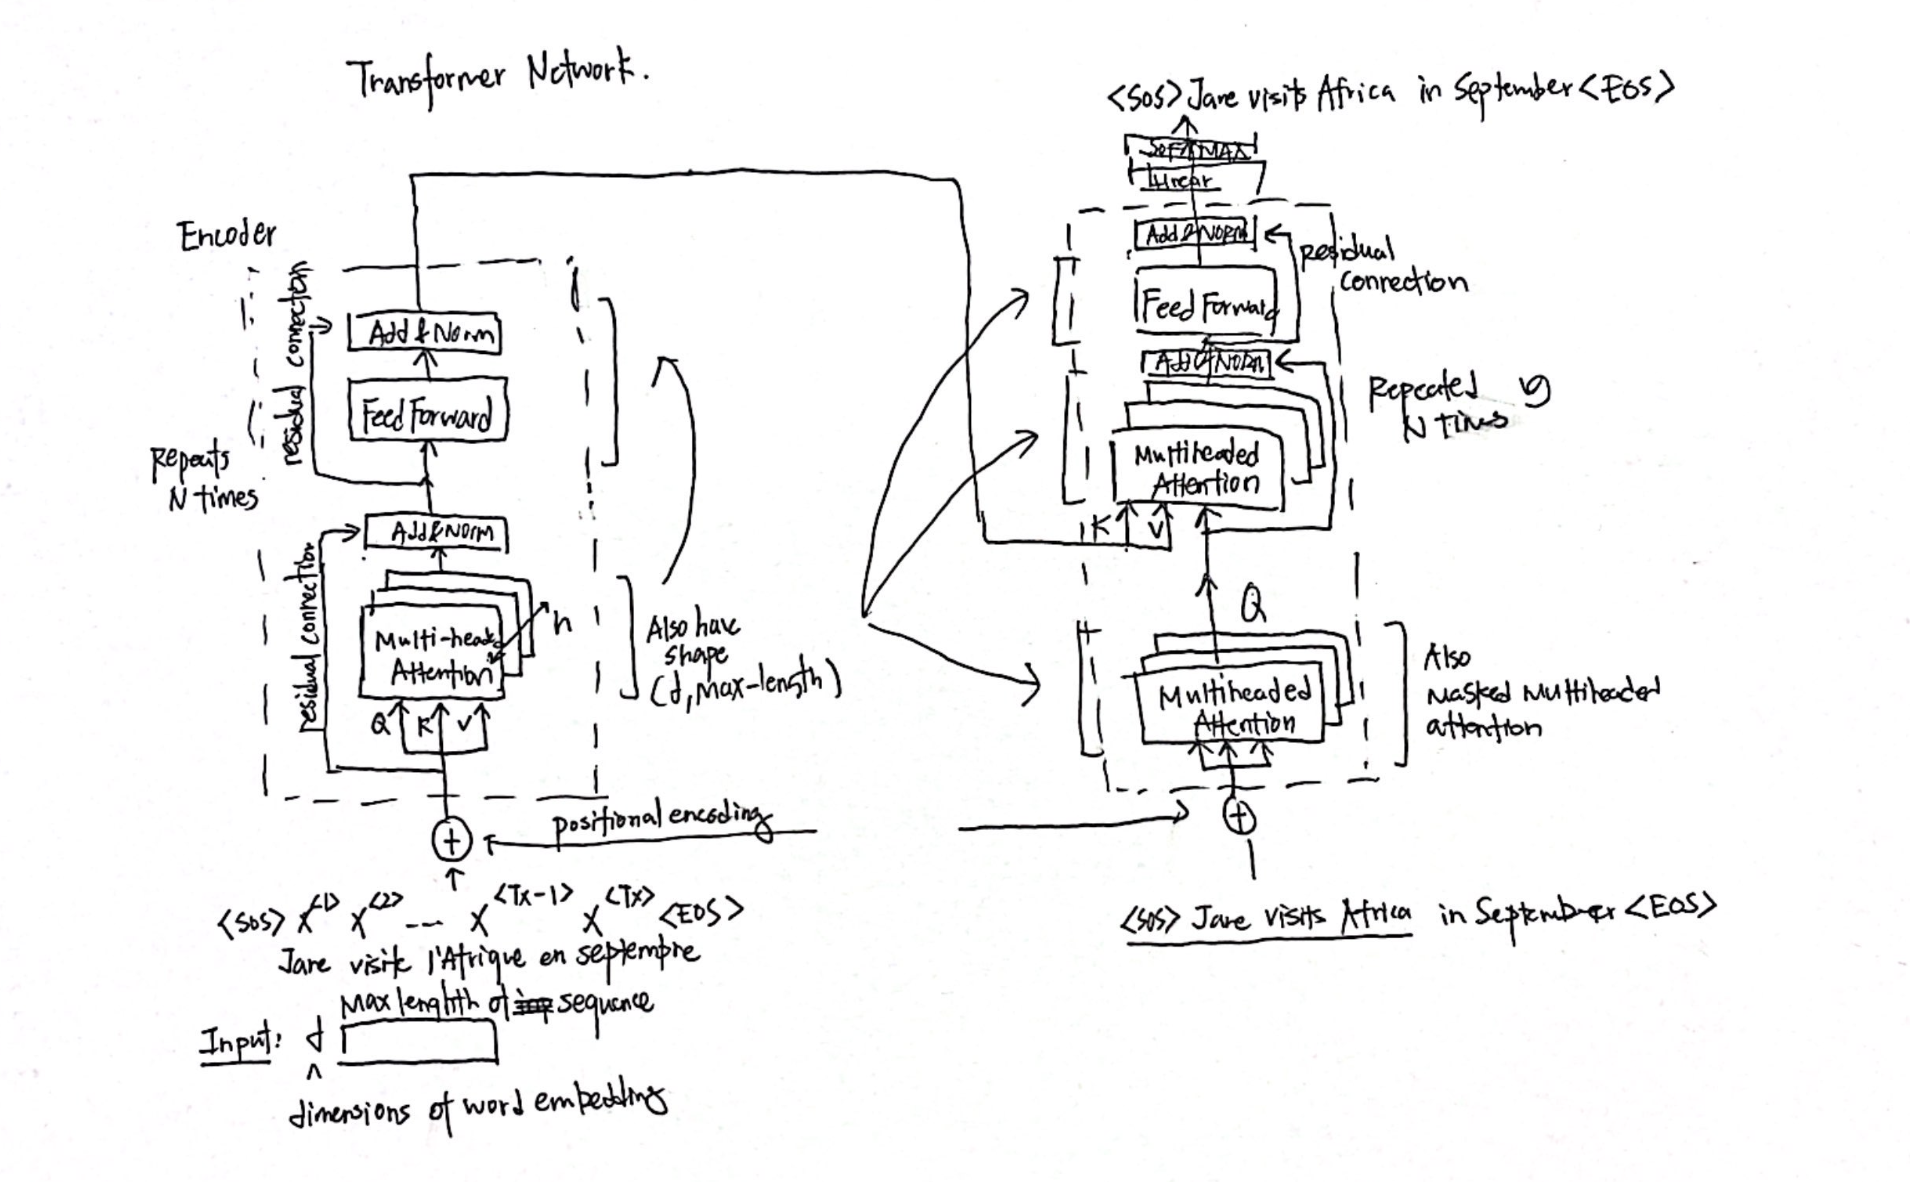 Transformer Network.
Encoder
residual connection
Add & Norm
Feed Forward
Repeats
N times
Add & Norm
residual connection
Multi-head
Attention
h
Q K V
Also have
shape
(d, Max-length)
positional encoding
<SOS> X<1> X<2> --- X<Tx-1> X<Tx> <EOS>
Jane visite l'Afrique en septembre
Max lenghth of sequence
Input: d
^
dimensions of word embedding
<SOS> Jane visits Africa in September <EOS>
SOFTMAX
Linear
Add & NORM
Residual
connection
Feed Forward
Add & NORM
Repeated
N times
Multiheaded
Attention
K V
Q
Multiheaded
Attention
Also
Masked Multiheaded
attention
<SOS> Jane visits Africa in September <EOS>